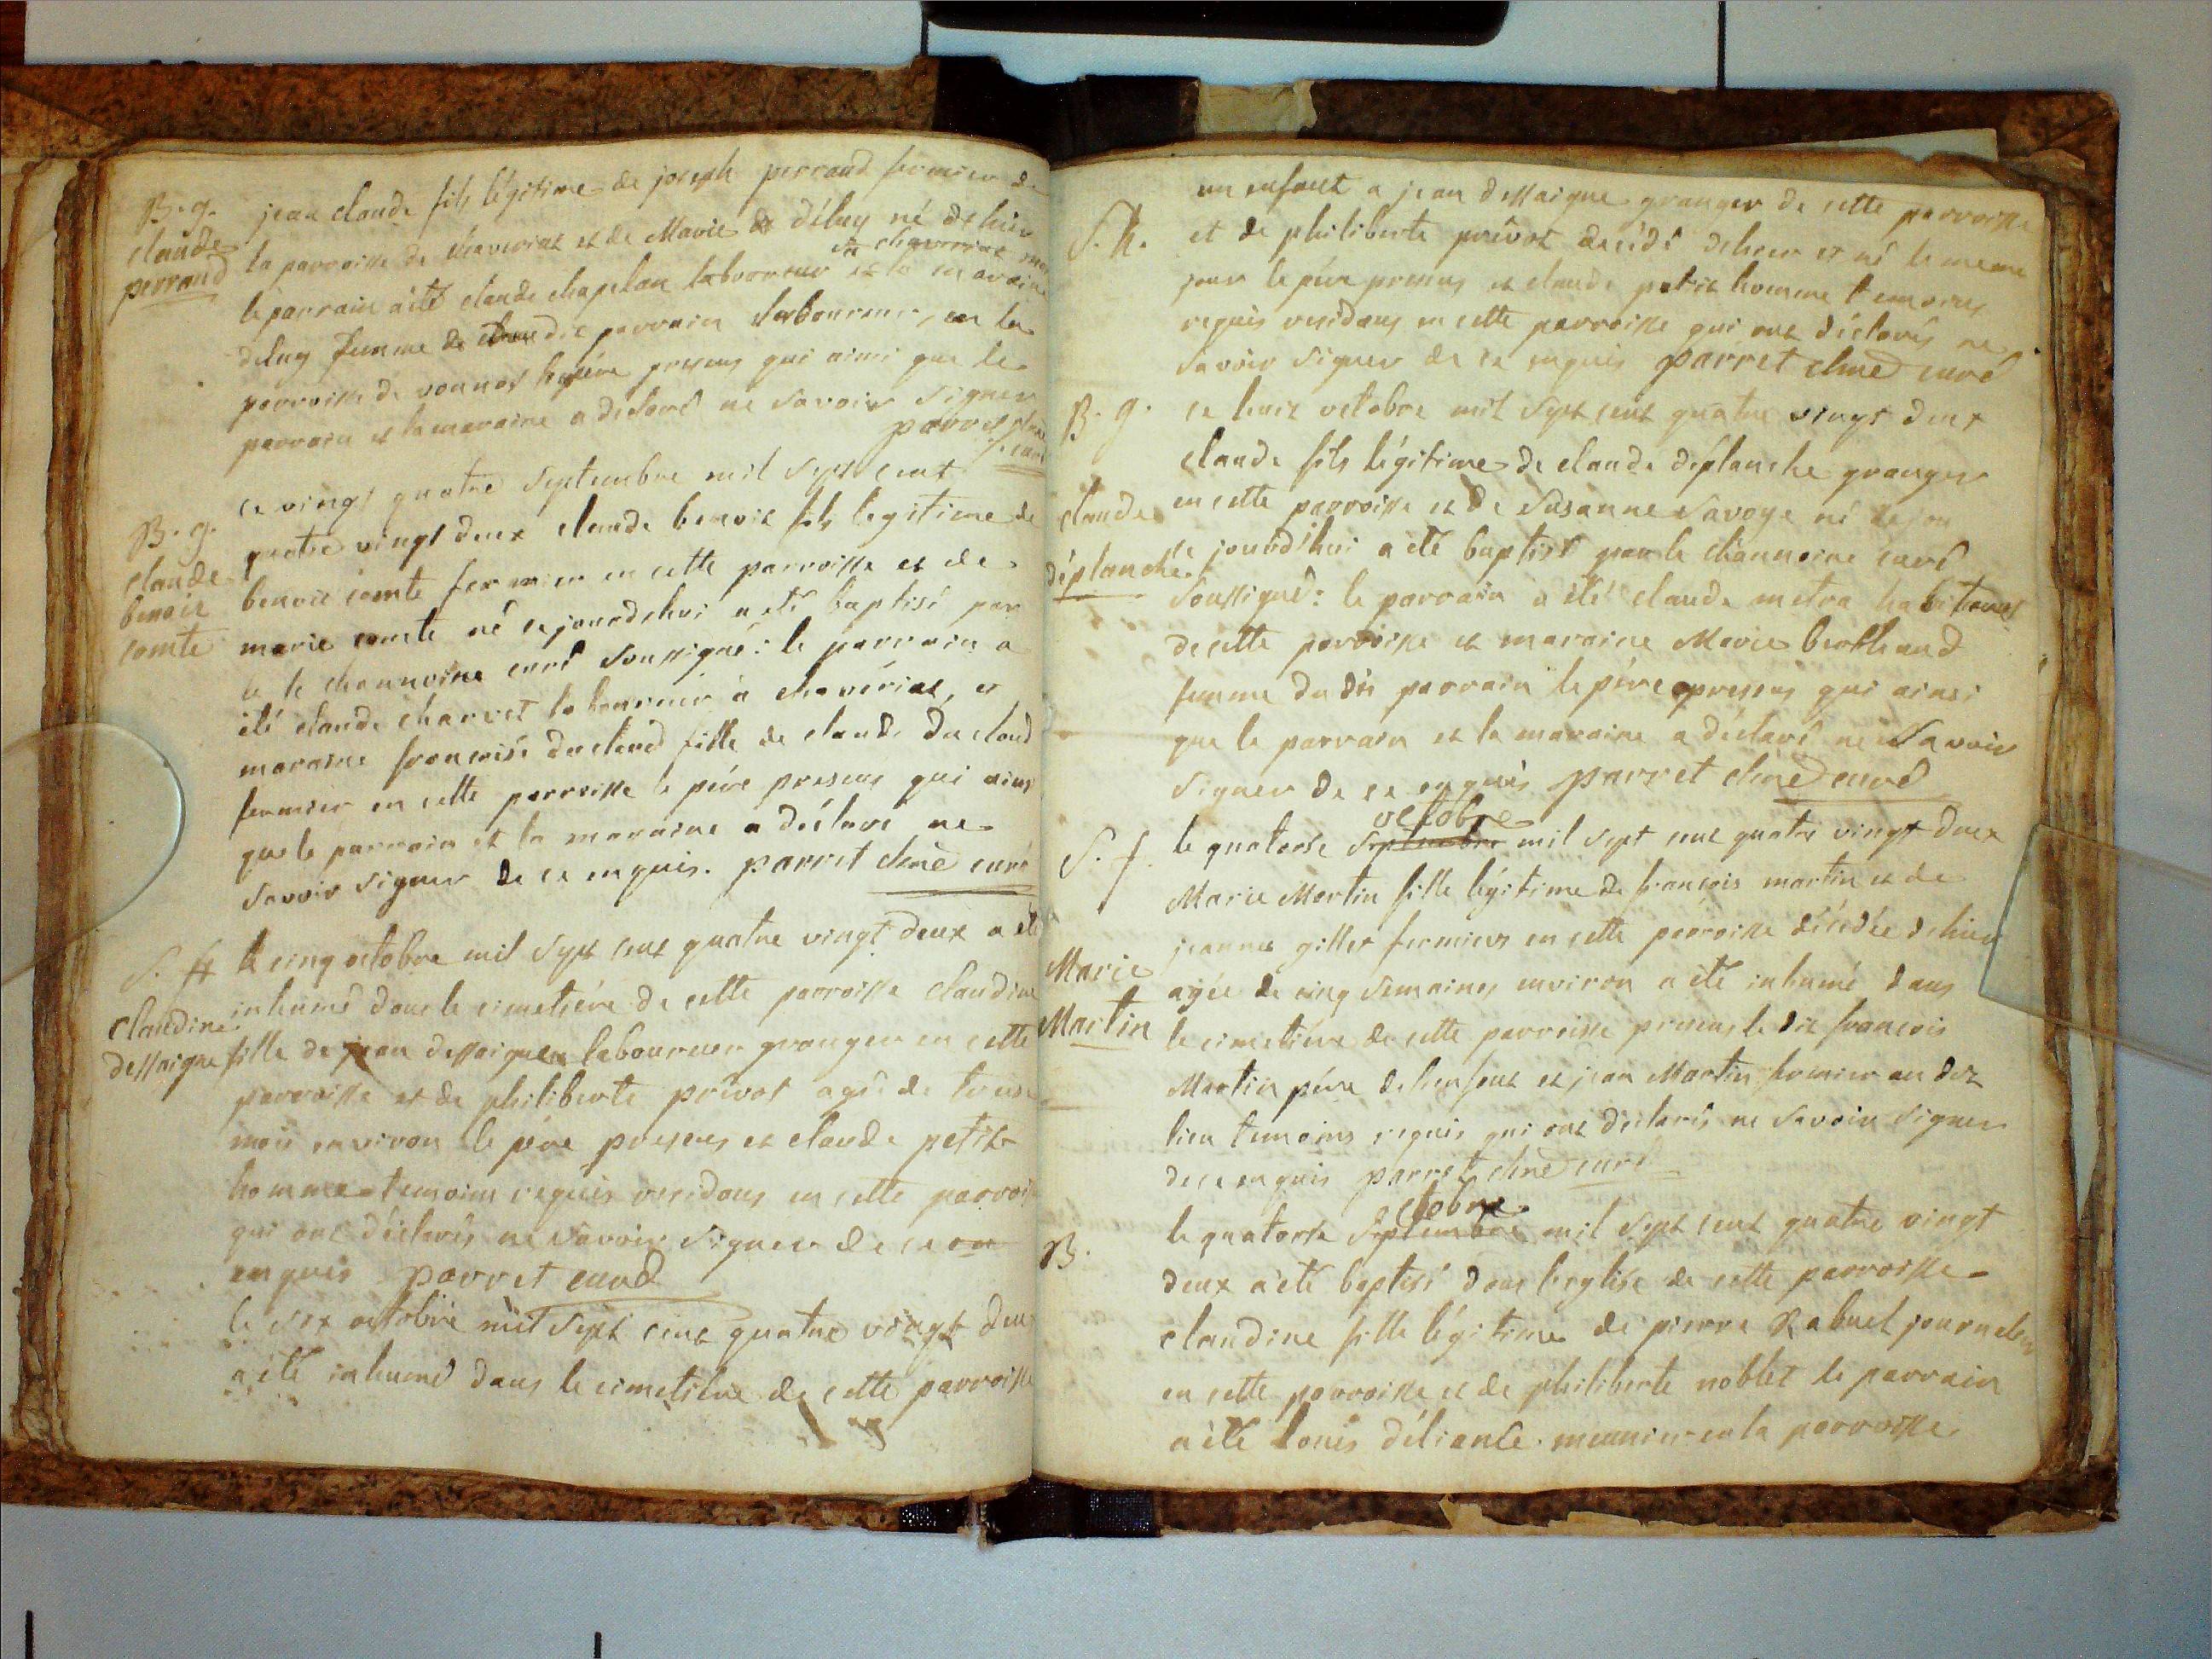 B. g. jean claude fils légitime de joseph perraud fermier de
claude la parroisse de chaveriat et de Marie déluy né de hier
perraud le parrain a été claude chaplan laboureur de chaveriat et la maraine
deluy femme de dit parrain laboureur, en la
parroisse de vonnas le père presens qui ainsi que le
parrain et la maraine a déclaré ne savoir signer
parret chne curé
ce vingt quatre septembre mil sept cent
B. g. quatre vingt deux claude benoit fils legitime de
claude benoit comte fermier en cette parroisse et de
benoit marie comte né cejourdehui a été baptisé par
comte le chanoine curé soussigné : le parrain a
été claude charvet laboureur à chavériat, et
maraine françoise duclaud fille de claude duclaud
fermier en cette parroisse le père presens qui ainsi
que le parrain et la maraine a déclaré ne
savoir signer de ce enquis. parret chne curé
S. f. le cinq octobre mil sept cent quatre vingt deux a été
inhumé dans le cimetière de cette parroisse claudine
claudine
dessaigne fille de jean dessaigne laboureur granger en cette
parroisse et de philiberte prévot agée de treise
mois environ le père presens et claude petit
homme temoins requis residans en cette parroisse
qui ont déclarés ne savoir signer de ce en
enquis parret curé
le six octobre mil sept cent quatre vingt deux
a été inhumé dans le cimetière de cette parroisse
un enfant a jean dessaigne granger de cette parroisse
S. h. et de philiberte prévot decédé dehier et né le meme
jour le père presens et claude petit homme temoins
requis residans en cette parroisse qui ont déclarés ne
savoir signer de ce enquis parret chne curé
B. g. ce huit octobre mil sept cent quatre vingt deux
claude fils légitime de claude déplanche granger
claude en cette parroisse et de Susanne Savoye né
déplanche ce jourd'hui a été baptisé par le chanoine curé
soussigné : le parrain a été claude metra habitans
de cette parroisse et maraine Marie brothaud
femme du dit parrain le père presens qui ainsi
que le parrain et la maraine a déclaré ne savoir
signer de ce enquis parret chne curé
octobre
S. f. le quatorse septembre mil sept cent quatre vingt deux
Marie Martin fille légitime de françois martin et de
jeanne gillet fermiers en cette parroisse décédée dehier
Marie agée de cinq semaines environ a été inhumé dans
Martin le cimetière de cette parroisse presens le dit françois
Martin père de lenfant et jean Martin fermier au dit
lieu temoins requis qui ont déclarés ne savoir signer
de ce enquis parret chne curé
ctobre
B. le quatorse septembre mil sept cent quatre vingt
deux a été baptisé dans leglise de cette parroisse
claudine fille légitime de pierre Rabuel journalier
en cette parroisse et de philiberte noblet le parrain
a été louis déliance meunier en la parroisse